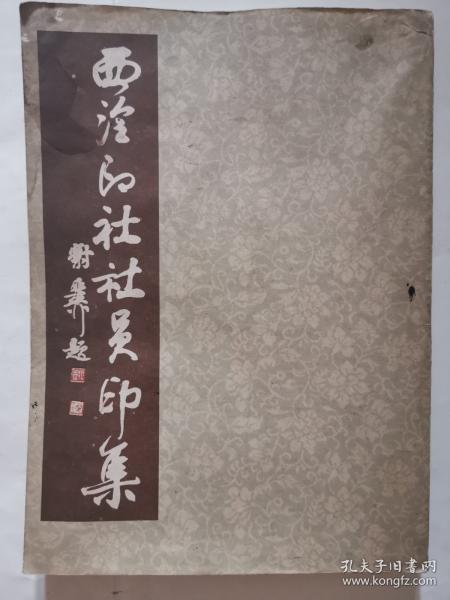 西泠印社社员印集
谢稚柳题
孔夫子旧书网
www.kongfz.com